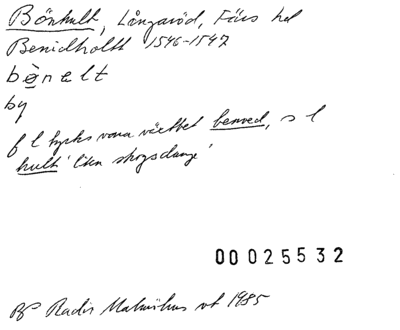 Bönhult, Långaröd, Färs hd
Benidholtt 1546-1547
bènelt
by
f l tycks vara växtbet benved, s l
hult 'liten skogsdunge'
00025532
Radis Malmöhus vt 1985